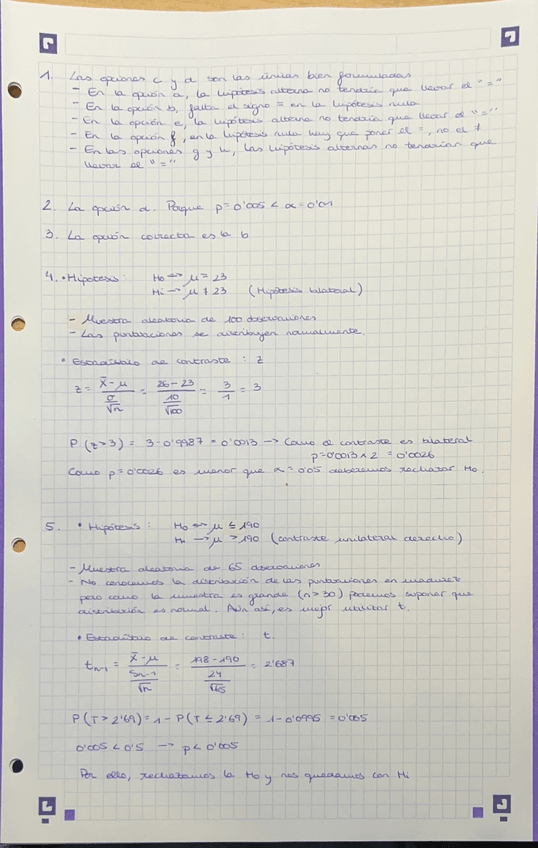 1. Las opciones c y d son las únicas bien formuladas
- En la opción a, la hipótesis alterna no tendría que llevar el "="
- En la opción b, falta el signo = en la hipótesis nula
- En la opción e, la hipótesis alterna no tendría que llevar el "="
- En la opción f, en la hipótesis nula hay que poner el =, no el ≠
- En las opciones g y h, las hipótesis alternas no tendrían que
llevar el "="
2. La opción d. Porque p=0'005 < α=0'01
3. La opción correcta es la b
4. • Hipótesis: H0 → μ = 23
Hi → μ ≠ 23 (Hipótesis bilateral)
- Muestra aleatoria de 100 observaciones
- Las puntuaciones se distribuyen normalmente.
• Estadístico de contraste: z
z = x̄-μ / σ/√n = 26-23 / 10/√100 = 3/1 = 3
P(z>3) = 3-0'9987 = 0'0013 → Como el contraste es bilateral
p=0'0013×2 = 0'0026
Como p=0'0026 es menor que α=0'05 deberemos rechazar H0.
5. • Hipótesis: H0 → μ ≤ 190
Hi → μ > 190 (contraste unilateral derecho)
- Muestra aleatoria de 65 observaciones
- No conocemos la distribución de las puntuaciones en madurez
pero como la muestra es grande (n>30) podemos suponer que
distribución es normal. Aún así, es mejor utilizar t.
• Estadístico de contraste: t.
tn-1 = x̄-μ / Sn-1/√n = 198-190 / 24/√65 = 2'687
P(T>2'69) = 1 - P(T≤2'69) = 1-0'0995 = 0'005
0'005 < 0'5 → p < 0'005
Por ello, rechazamos la H0 y nos quedamos con Hi